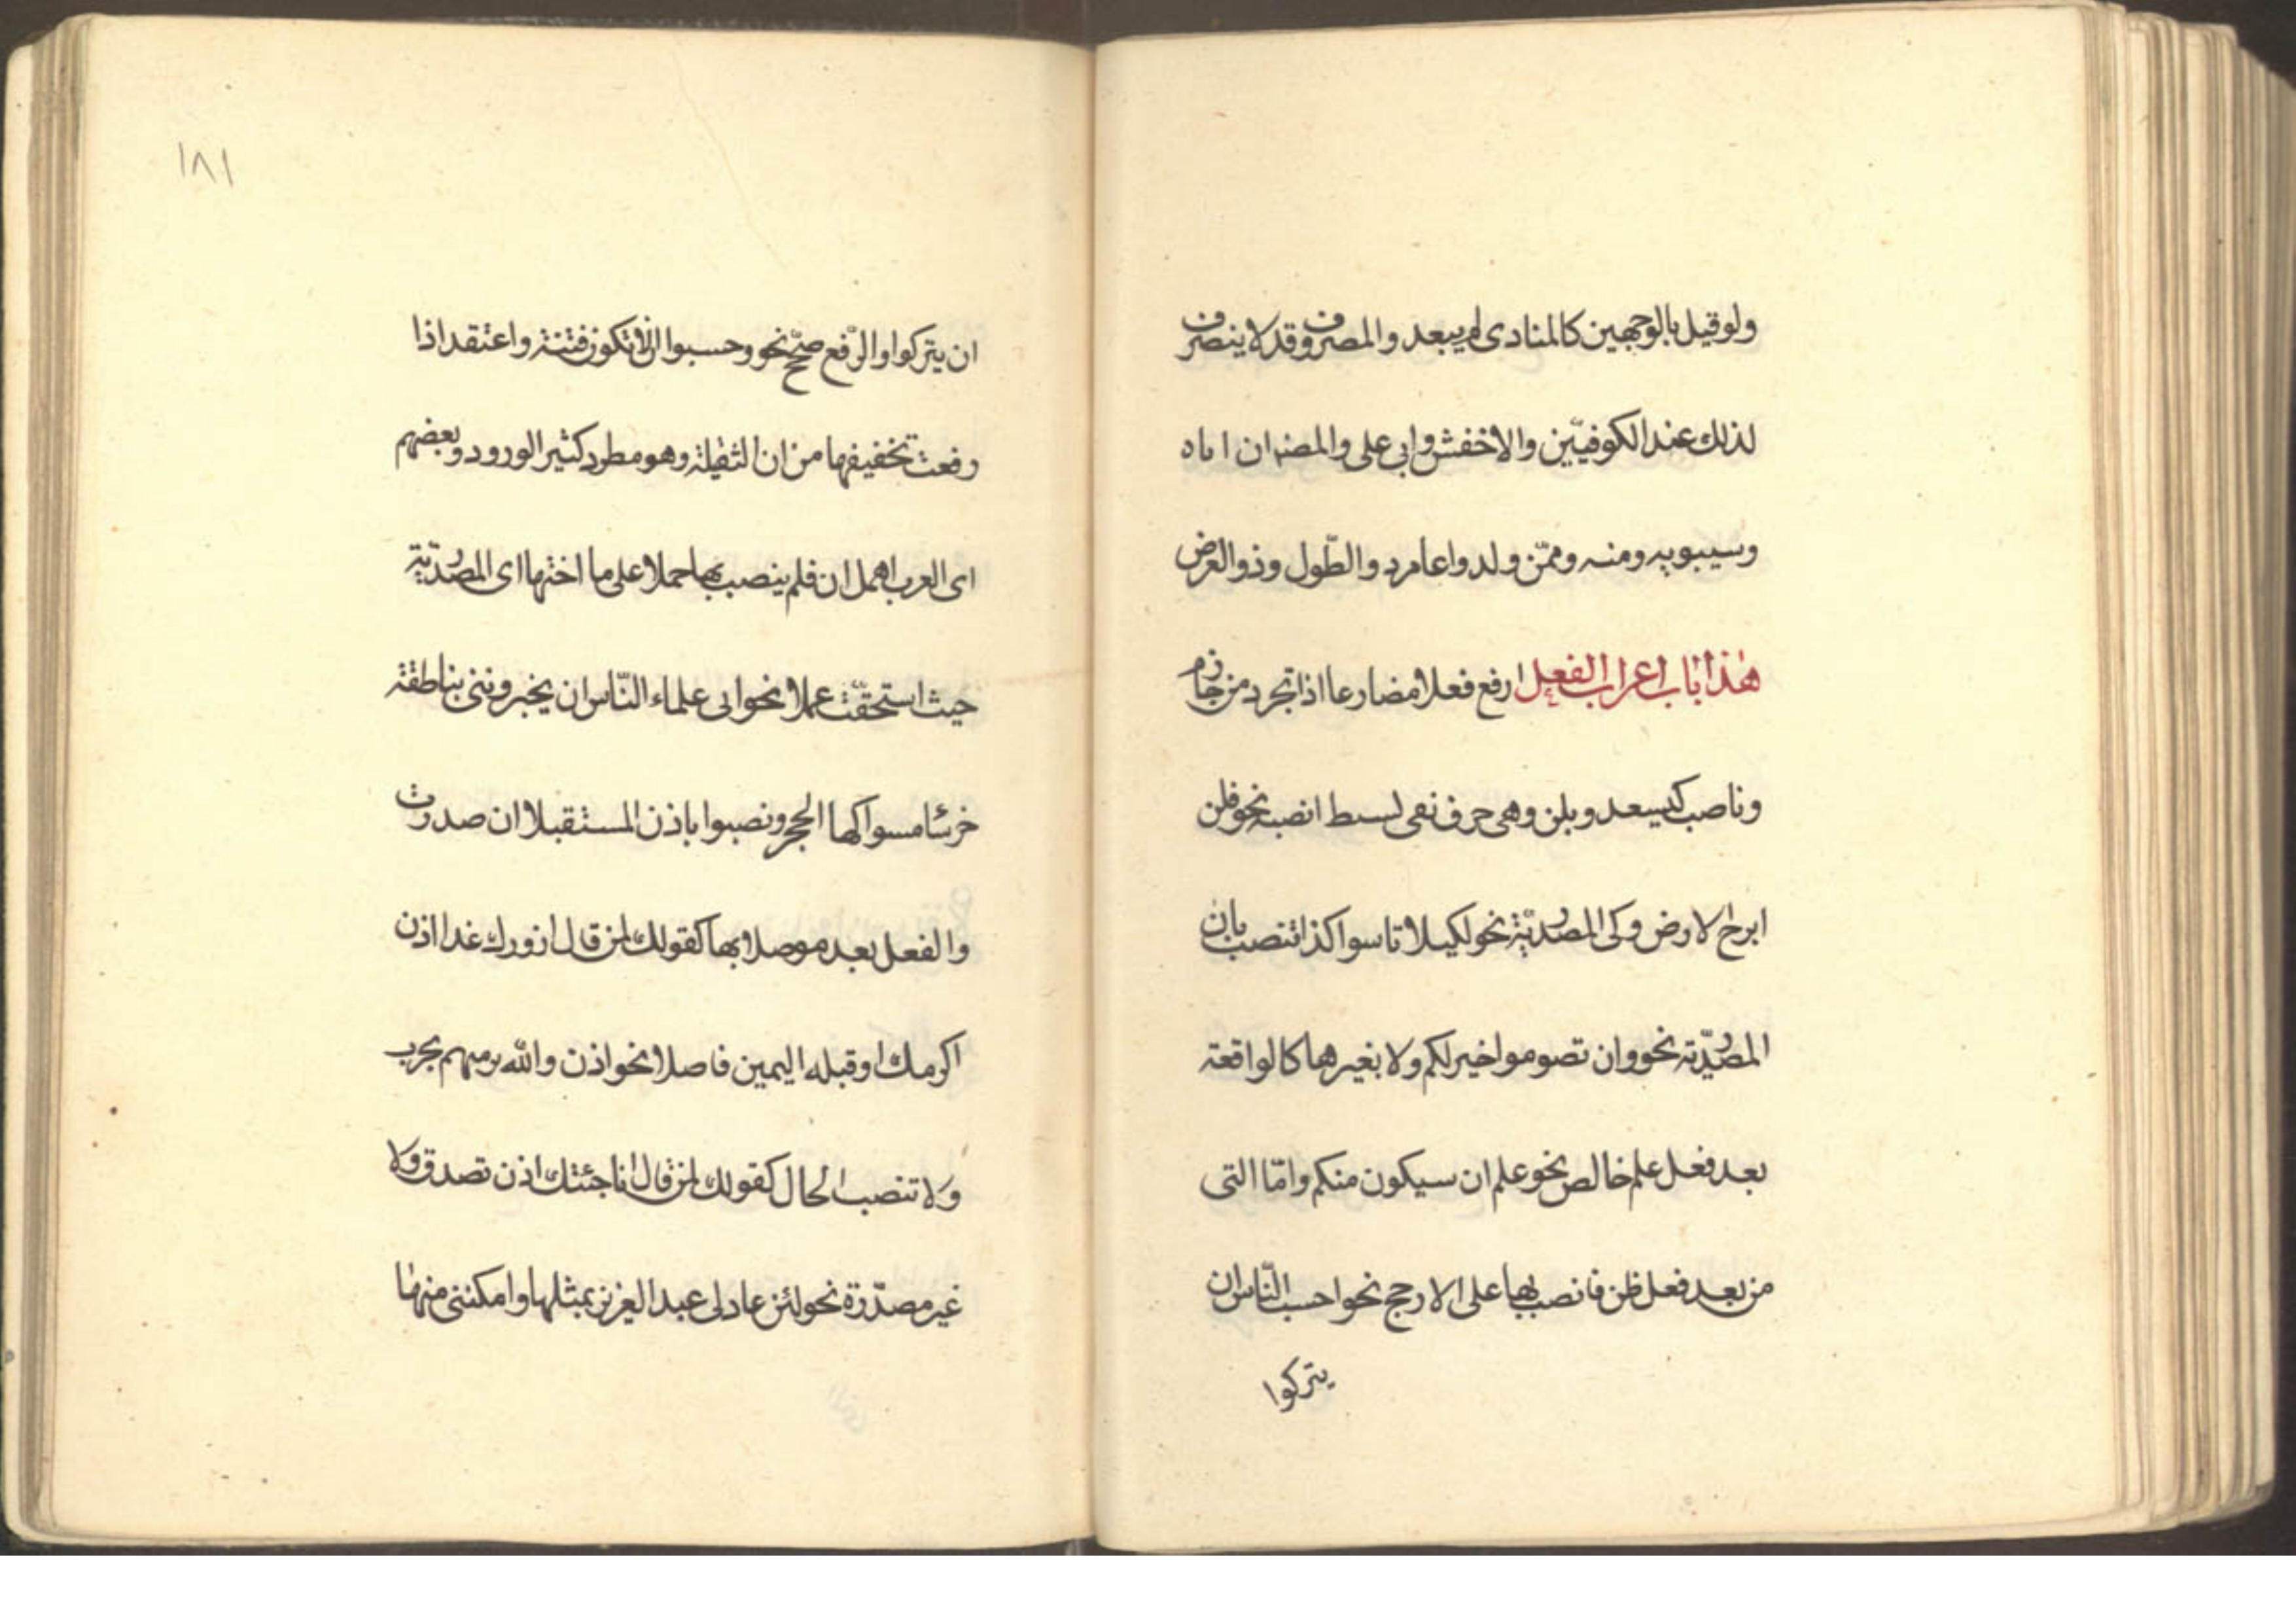 ولو قيل بالوجهين كالمنادى لم يبعد والمصروف قد لا ينصرف
لذلك عند الكوفيّين والاخفش وابى على والمصنف ان اباه
وسيبويه ومنه وممّن ولدوا عامر ذو الطّول وذو العرض
هذا باب اعراب الفعل ارفع فعلا مضارعا اذا تجرد من جازم
وناصب كيسعد وبلن وهى حرف نفى بسيط انصبه نحو فلن
ابرح الارض وكى المصدريّة نحو لكيلا تاسوا كذا تنصب بان
المصدريّة نحو وان تصوموا خير لكم ولا بغيرهما كالواقعة
بعد فعل علم خالص نحو علم ان سيكون منكم وامّا التى
من بعد فعل ظن فانصب بها على الارجح نحو احسب النّاس ان
يتركوا
١٨١
ان يتركوا والرّفع صحّح نحو وحسبوا ان لا تكون فتنة واعتقد اذا
رفعت تخفيفها من ان الثقيلة وهو مطرد كثير الورود وبعضهم
اى العرب اهمل ان فلم ينصب بها حملا على ما اختها اى المصدريّة
حيث استحقّت عملا نحو ابى علماء النّاس ان يخبروننى بناطقة
خرسا مسواكها الحجر ونصبوا باذن المستقبلا ان صدرت
والفعل بعد موصلا بها كقولك لمن قال ازورك غدا اذن
اكرمك او قبله اليمين فاصلا نحو اذن والله نرميهم بحرب
ولا تنصب الحال كقولك لمن قال انا جئتك اذن تصدق ولا
غير مصدّرة نحو لئن عاد لى عبد العزيز بمثلها وامكننى منها